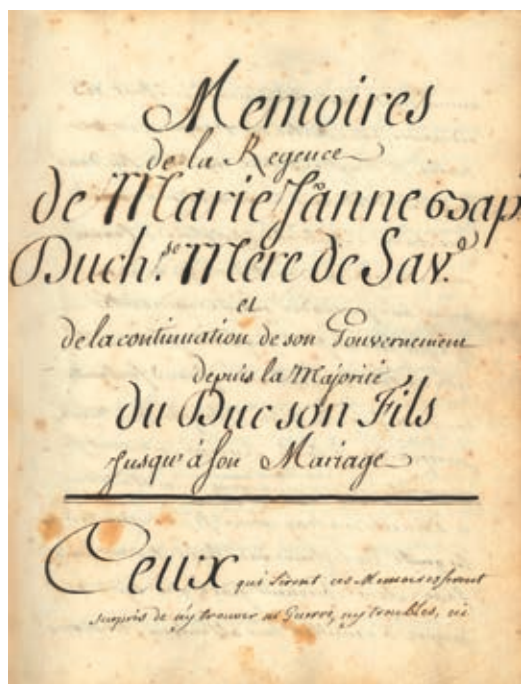 Memoires
de la Regence
de Marie Jãnne Bap.
Duch.se Mere de Sav.e
et
de la continuation de son Gouvernement
depuis la Majorité
du Duc son Fils
Jusqu'à son Mariage
Ceux qui liront ces Memoires seront
surpris de n'y trouver ni Guerre, ny troubles, ni